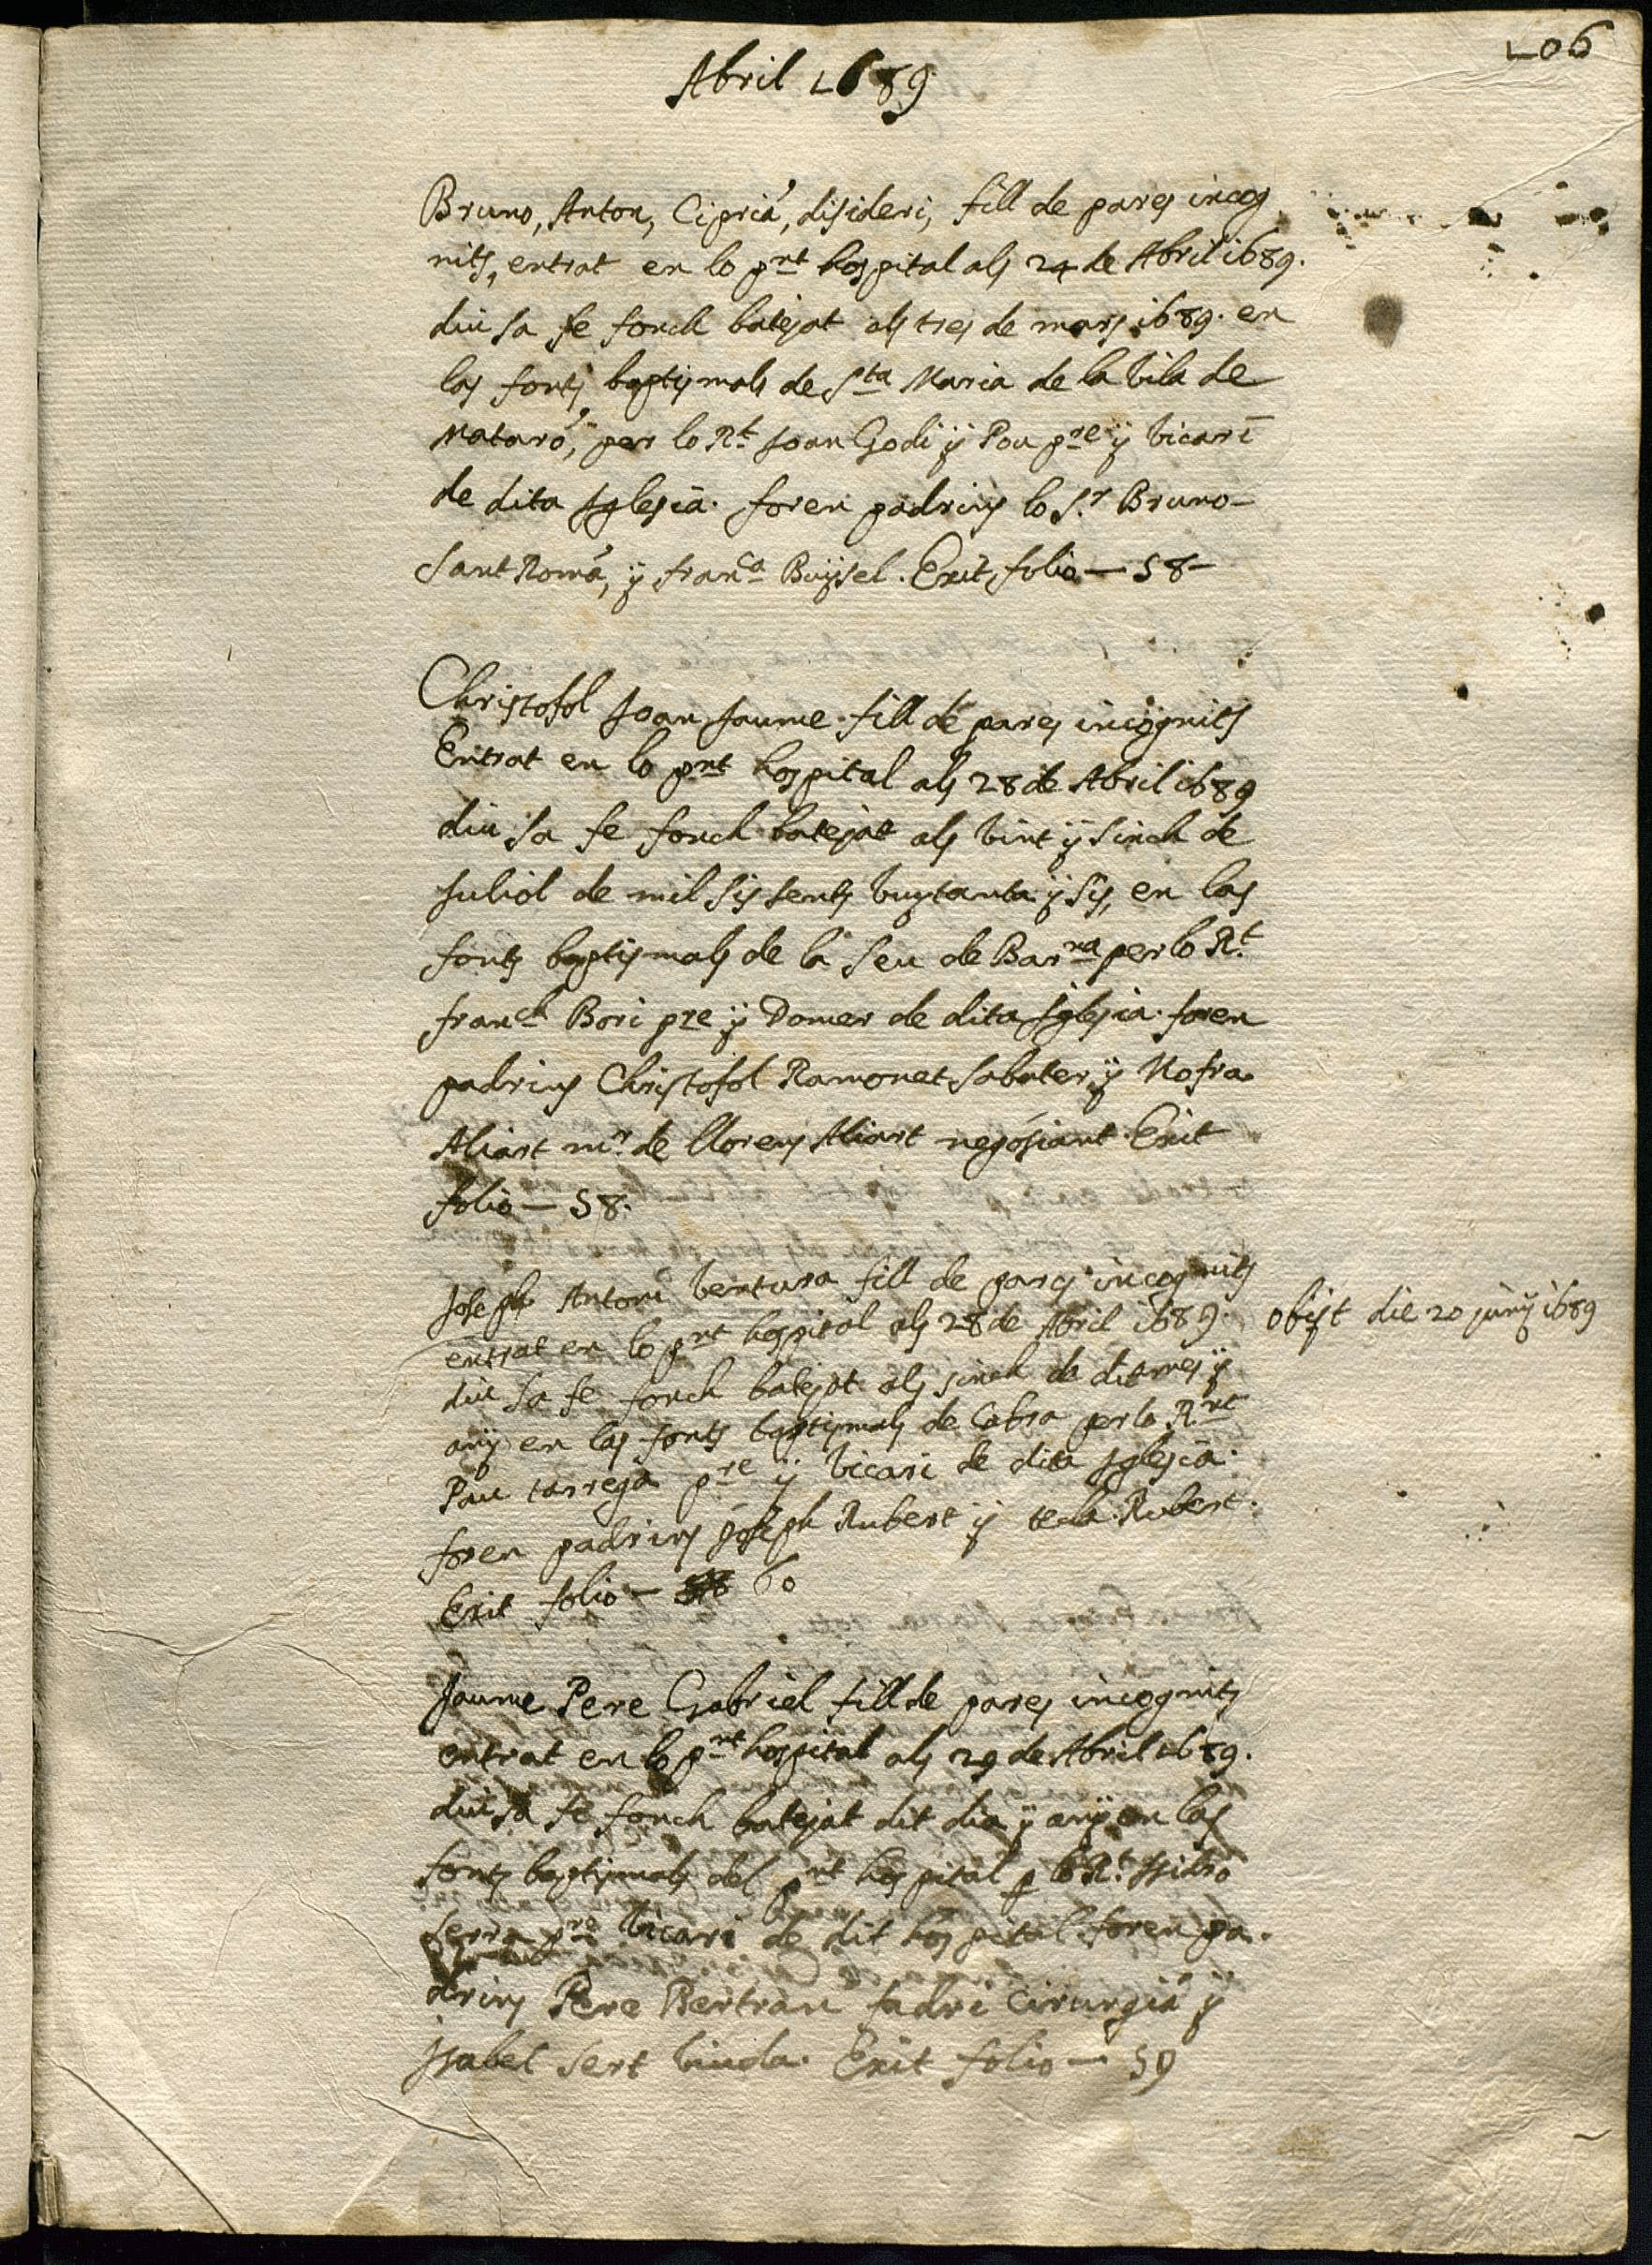 106
Abril 1689
Bruno, Anton, Ciprià, disideri, fill de pares incog
nits, entrat en lo pnt hospital als 24 de Abril 1689.
diu sa fe fonch batejat als tres de mars 1689. en
las fonts baptismals de Sta Maria de la vila de
Mataró, per lo Rt Joan Godi y Pou pre y vicari
de dita Iglesia. foren padrins lo Sr Bruno
Sant Romà, y franca Buysel. Exit folio — 58 —
Christofol Joan Jaume fill de pares incognits
Entrat en lo pnt hospital als 28 de Abril 1689
diu sa fe fonch batejat als vint y sinch de
Juliol de mil sis sents vuytanta y sis, en las
fonts baptismals de la Seu de Barna per lo Rt
franch Bori pre y Domer de dita Iglesia. foren
padrins Christofol Ramonet Sabater y Nofra
Aliart mr de llorens Aliart negosiant Exit
folio — 58.
Joseph Antoni Ventura fill de pares incognits
entrat en lo pnt hospital als 28 de Abril 1689. obijt die 20 junij 1689
diu sa fe fonch batejat als sinch de dit mes y
any en las fonts baptismals de Cabra per lo Rnt
Pau tarrega pre y vicari de dita Iglesia.
foren padrins Joseph Rubert y tecla Rubert.
Exit folio — 60
Jaume Pere Gabriel fill de pares incognits
entrat en lo pnt hospital als 29 de Abril 1689.
diu sa fe fonch batejat dit dia y any en las
fonts baptismals del pnt hospital p lo Rt Isidro
serra pre vicari de dit hospital foren pa
drins Pere Bertran fadri Cirurgià y
Isabel Sert viuda. Exit folio — 59